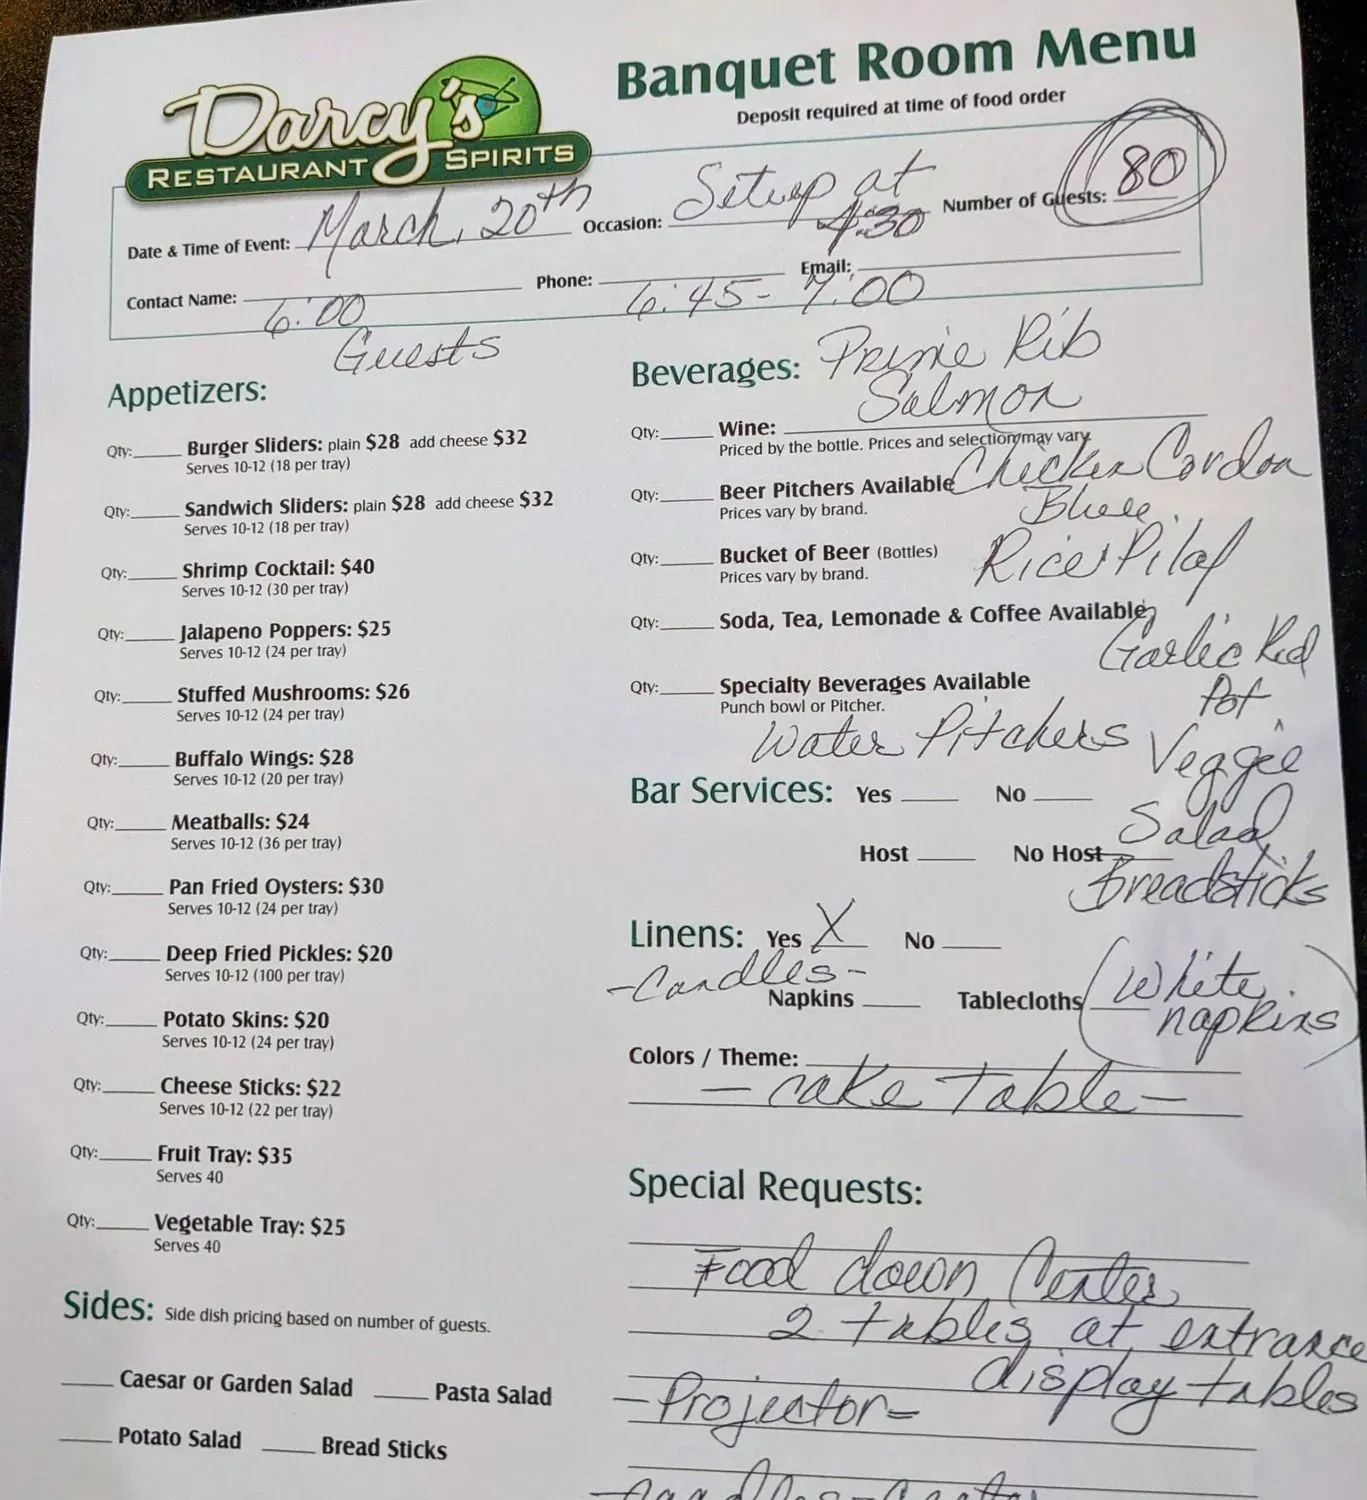 Darcy's
RESTAURANT SPIRITS
Banquet Room Menu
Deposit required at time of food order
Date & Time of Event: March, 20th Occasion: Setup at 4:30 Number of Guests: 80
Contact Name: Phone: Email:
6:00 6:45- 7:00
Guests
Appetizers:
Qty: Burger Sliders: plain $28 add cheese $32
Serves 10-12 (18 per tray)
Qty: Sandwich Sliders: plain $28 add cheese $32
Serves 10-12 (18 per tray)
Qty: Shrimp Cocktail: $40
Serves 10-12 (30 per tray)
Qty: Jalapeno Poppers: $25
Serves 10-12 (24 per tray)
Qty: Stuffed Mushrooms: $26
Serves 10-12 (24 per tray)
Qty: Buffalo Wings: $28
Serves 10-12 (20 per tray)
Qty: Meatballs: $24
Serves 10-12 (36 per tray)
Qty: Pan Fried Oysters: $30
Serves 10-12 (24 per tray)
Qty: Deep Fried Pickles: $20
Serves 10-12 (100 per tray)
Qty: Potato Skins: $20
Serves 10-12 (24 per tray)
Qty: Cheese Sticks: $22
Serves 10-12 (22 per tray)
Qty: Fruit Tray: $35
Serves 40
Qty: Vegetable Tray: $25
Serves 40
Sides: Side dish pricing based on number of guests.
Caesar or Garden Salad Pasta Salad
Potato Salad Bread Sticks
Beverages: Prime Rib
Salmon
Qty: Wine:
Priced by the bottle. Prices and selection may vary.
Chicken Cordon
Qty: Beer Pitchers Available
Prices vary by brand.
Blue
Qty: Bucket of Beer (Bottles)
Prices vary by brand.
Rice Pilaf
Qty: Soda, Tea, Lemonade & Coffee Available
Garlic Red
Pot
Qty: Specialty Beverages Available
Punch bowl or Pitcher.
Water Pitchers
Veggie
Bar Services: Yes No
Salad
Host No Host
Breadsticks
Linens: Yes X No
-Candles-
Napkins Tablecloths
(White
napkins)
Colors / Theme:
- cake table -
Special Requests:
Food down Center
2 tables at entrance
display tables
- Projector -